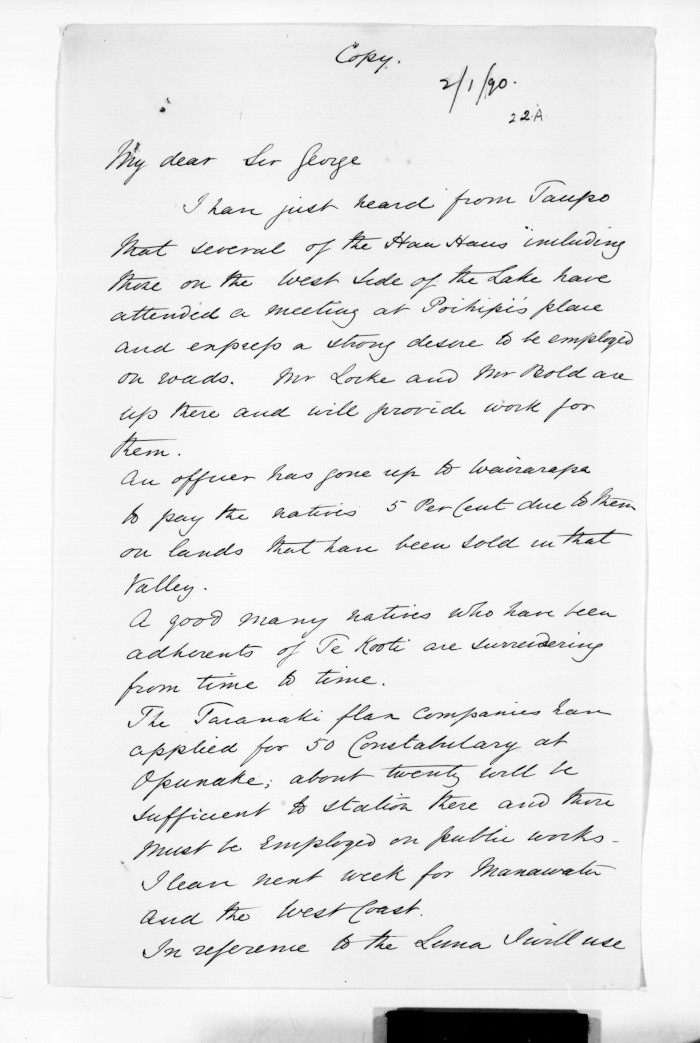 Copy.
2/1/90.
22.A
My dear Sir George
I have just heard from Taupo
that several of the Hau Haus including
those on the West side of the Lake have
attended a meeting at Poihipi's place
and express a strong desire to be employed
on roads. Mr Locke and Mr Bold are
up there and will provide work for
them.
An officer has gone up to Wairarapa
to pay the natives 5 Per Cent due to them
on lands that have been sold in that
Valley.
A good many natives who have been
adherents of Te Kooti are surrendering
from time to time.
The Taranaki flax Companies have
applied for 50 Constabulary at
Opunake; about twenty will be
sufficient to station there and those
must be employed on public works -
I leave next week for Manawatu
and the West Coast.
In reference to the Luna I will use